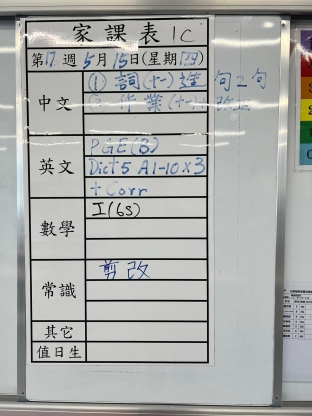 家課表 1C
第17週5月15日(星期四)
中文
(1) 詞(十一)造句2句
作業(十一)改正
英文
PGE(B)
Dict 5 A1-10 x 3
+ Corr
數學
I(6s)
常識
剪改
其它
值日生